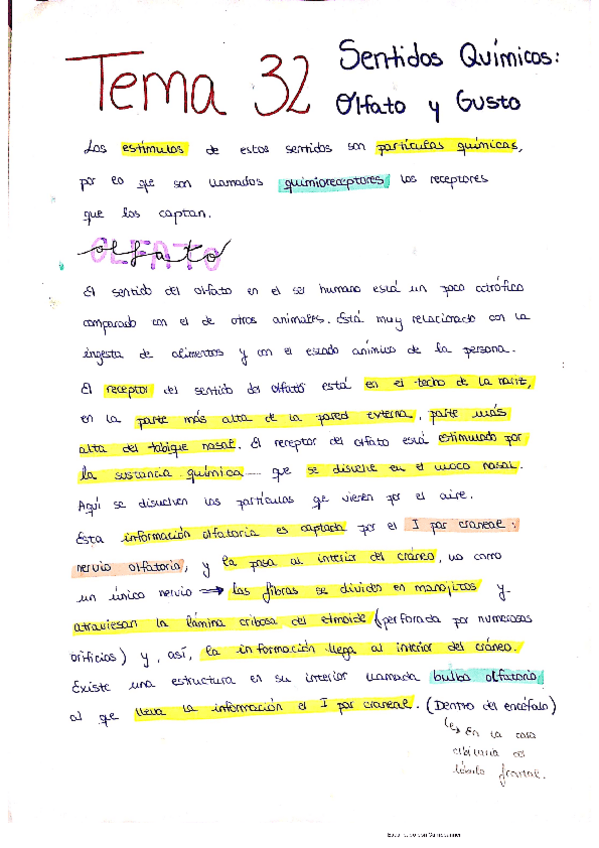 Tema 32 Sentidos Químicos:
Olfato y Gusto
Los estímulos de estos sentidos son partículas químicas,
por lo que son llamados quimioreceptores los receptores
que los captan.
OLFATO
olfato
El sentido del olfato en el ser humano está un poco atrófico
comparado con el de otros animales. Está muy relacionado con la
ingesta de alimentos y con el estado anímico de la persona.
El receptor del sentido del olfato está en el techo de la nariz,
en la parte más alta de la pared externa, parte más
alta del tabique nasal. El receptor del olfato está estimulado por
la sustancia química que se disuelve en el moco nasal.
Aquí se disuelven las partículas que vienen por el aire.
Esta información olfatoria es captada por el I par craneal:
nervio olfatorio, y la pasa al interior del cráneo, no como
un único nervio ⟹ las fibras se dividen en manojitos y
atraviesan la lámina cribosa del etmoide (perforada por numerosos
orificios) y, así, la información llega al interior del cráneo.
Existe una estructura en su interior llamada bulbo olfatorio,
al que lleva la información el I par craneal. (Dentro del encéfalo)
En la cara
orbitaria del
lóbulo frontal.